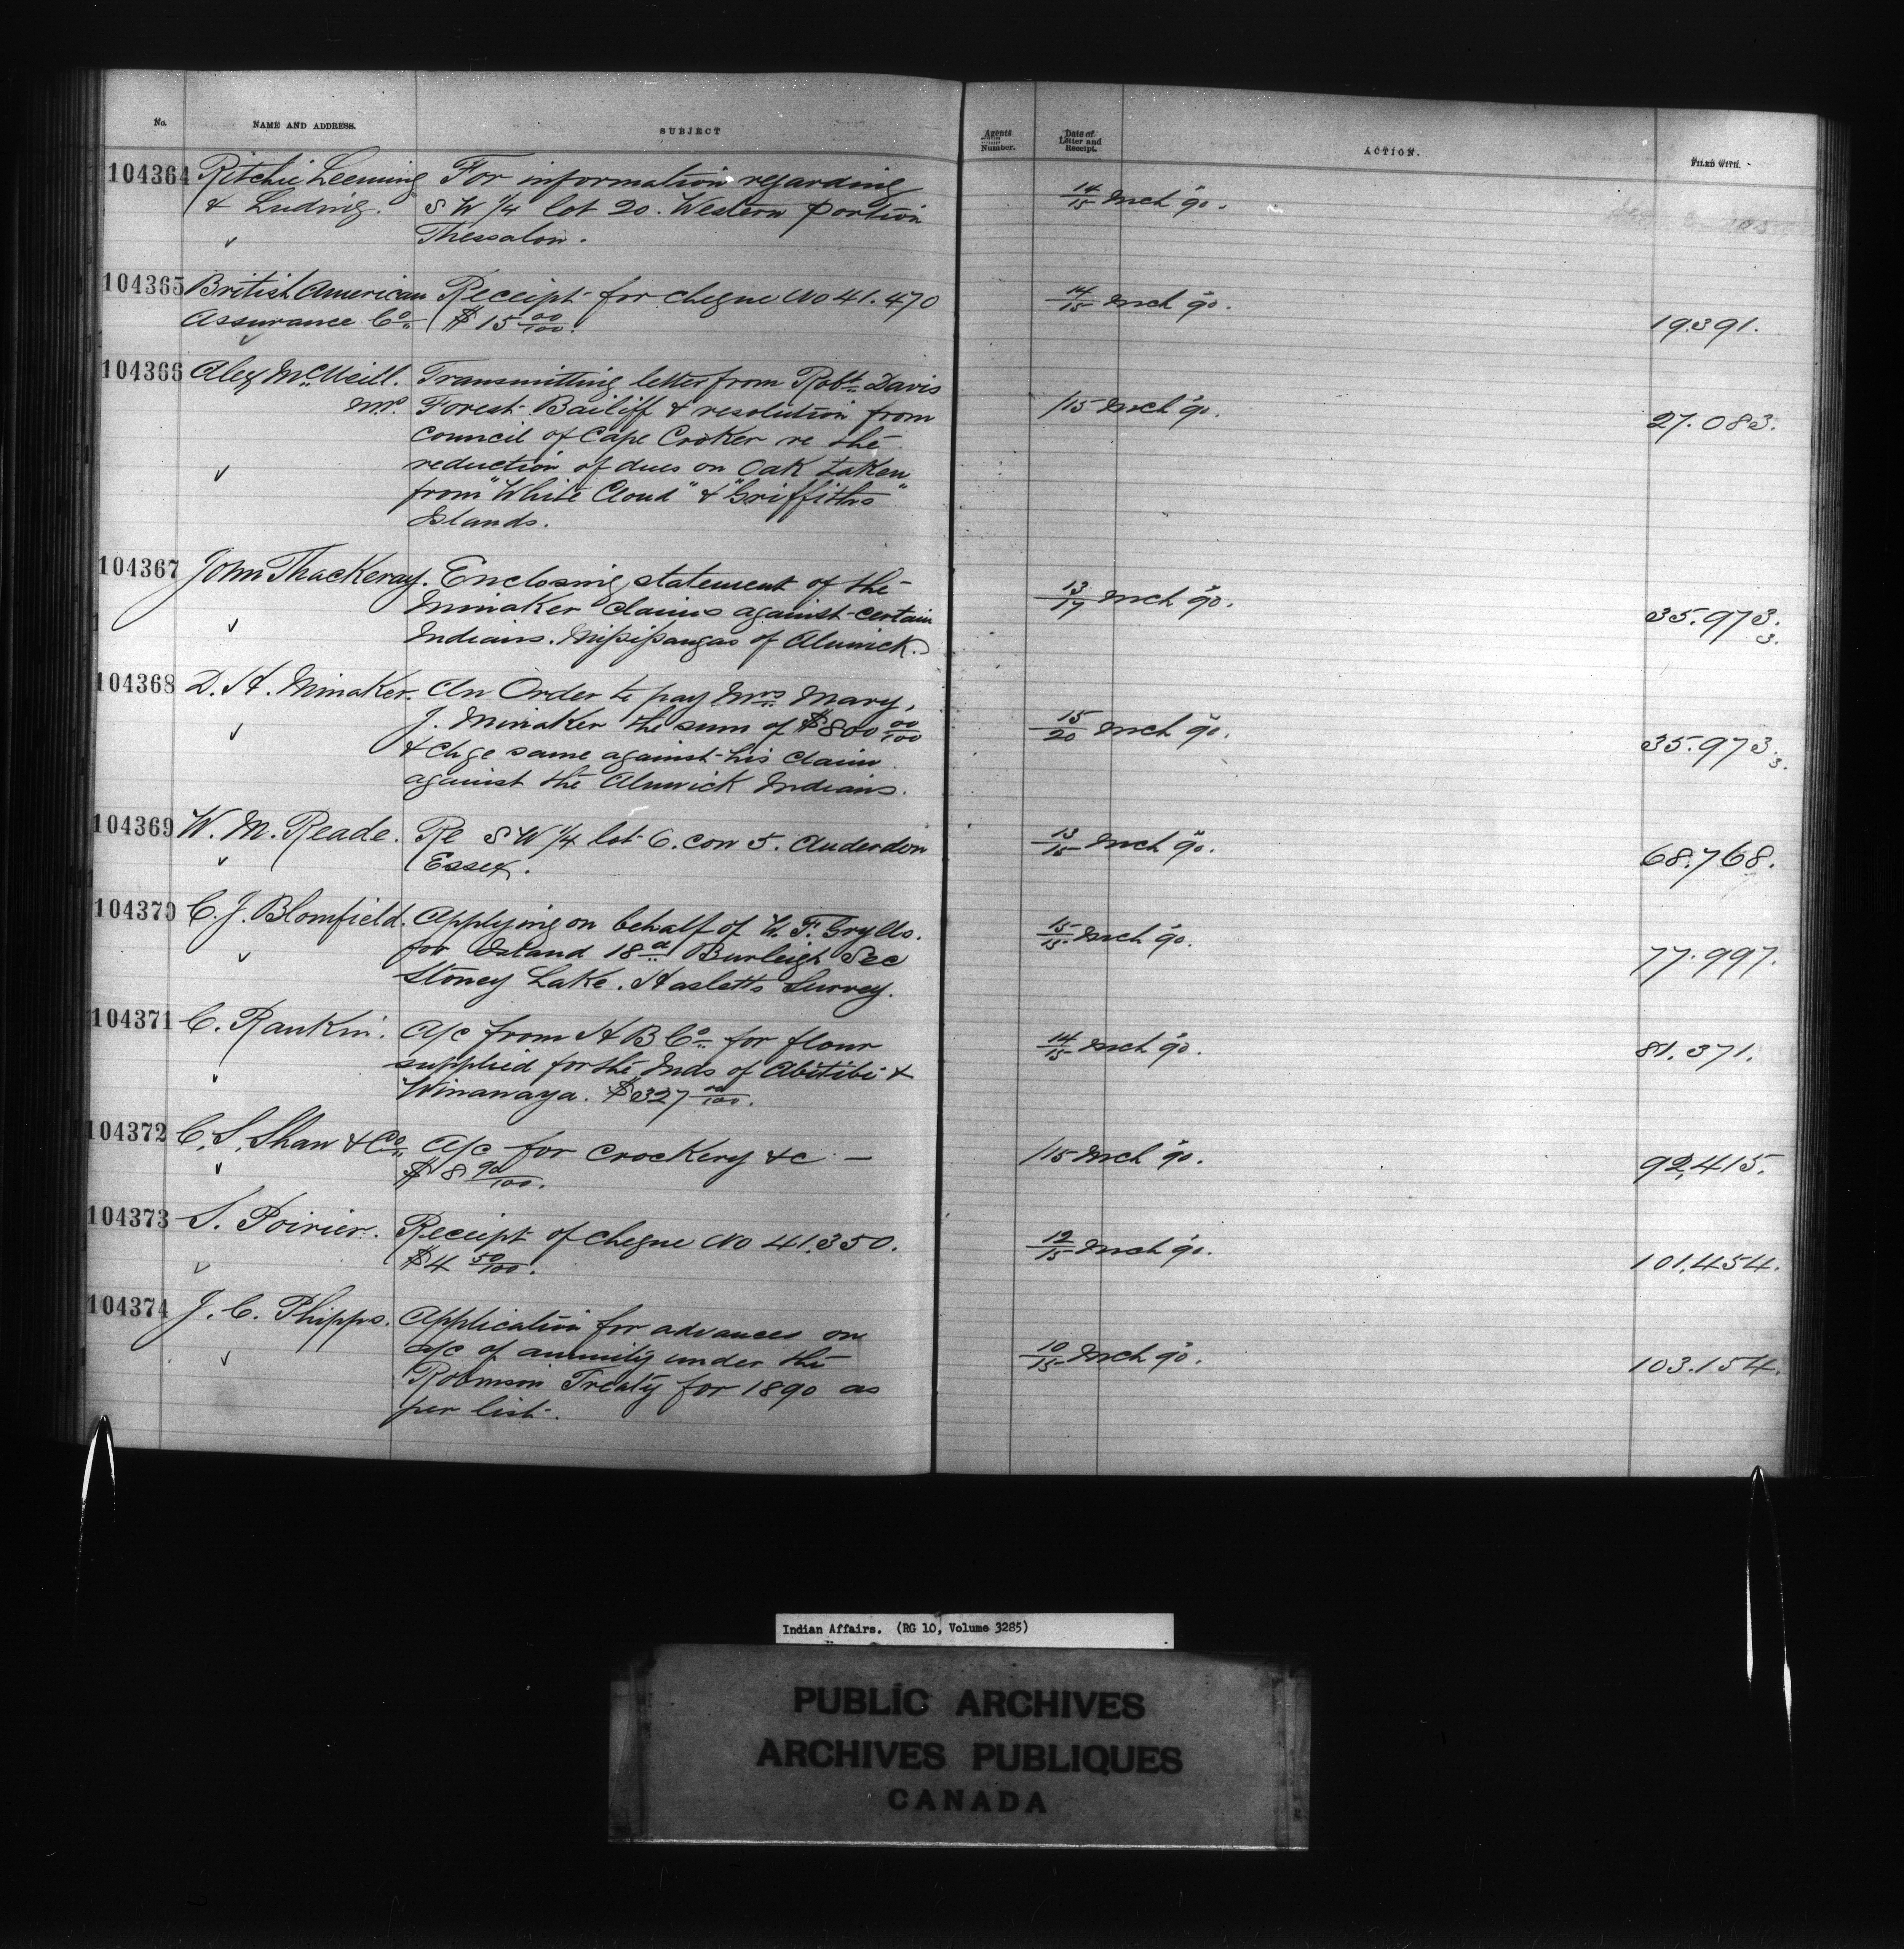 No. NAME AND ADDRESS. SUBJECT Agents Number. Date of Letter and Receipt. ACTION. FILED WITH.
104364 Ritchie Leeming For information regarding
& Ludwig. S W 1/4 lot 20. Western portion 14/15 Mch 90.
Thessalon.
104365 British American Receipt for cheque No 41.470 14/15 Mch 90.
Assurance Co. $15 00/100. 19391.
104366 Alex McNeill. Transmitting letter from Robt. Davis
M.P. Forest Bailiff & resolution from /15 Mch 90. 27.083.
Council of Cape Croker re the
reduction of dues on Oak taken
from "White Cloud" & "Griffiths"
Islands.
104367 John Thackeray. Enclosing statement of the
Minaker claims against certain 13/17 Mch 90. 35.973.
Indians. Mississaugas of Alnwick. 3.
104368 D. H. Minaker. An Order to pay Mrs. Mary,
J. Minaker the sum of $800 00/100 15/20 Mch 90. 35.973.
& chge same against his claim 3.
against the Alnwick Indians.
104369 W. M. Reade. Re S W 1/4 lot 6. con 5. Anderdon 13/15 Mch 90. 68.768.
Essex.
104370 C. J. Blomfield. Applying on behalf of W. F. Grylls. 15/15 Mch 90.
for Island 18a Burleigh Sec 77.997.
Stoney Lake. Hasletts Survey.
104371 C. Rankin. A/c from H B Co. for flour 14/15 Mch 90. 81.371.
supplied for the Inds of Abitibi &
Winawaya. $327 00/100.
104372 C. S. Shaw & Co. A/c for Crockery &c — /15 Mch 90. 92,415.
$8 90/100.
104373 S. Poirier. Receipt of cheque No 41.350. 12/15 Mch 90. 101.454.
$4 50/100.
104374 J. C. Phipps. Application for advances on
a/c of annuity under the 10/15 Mch 90. 103.154.
Robinson Treaty for 1890 as
per list.
Indian Affairs. (RG 10, Volume 3285)
PUBLIC ARCHIVES
ARCHIVES PUBLIQUES
CANADA